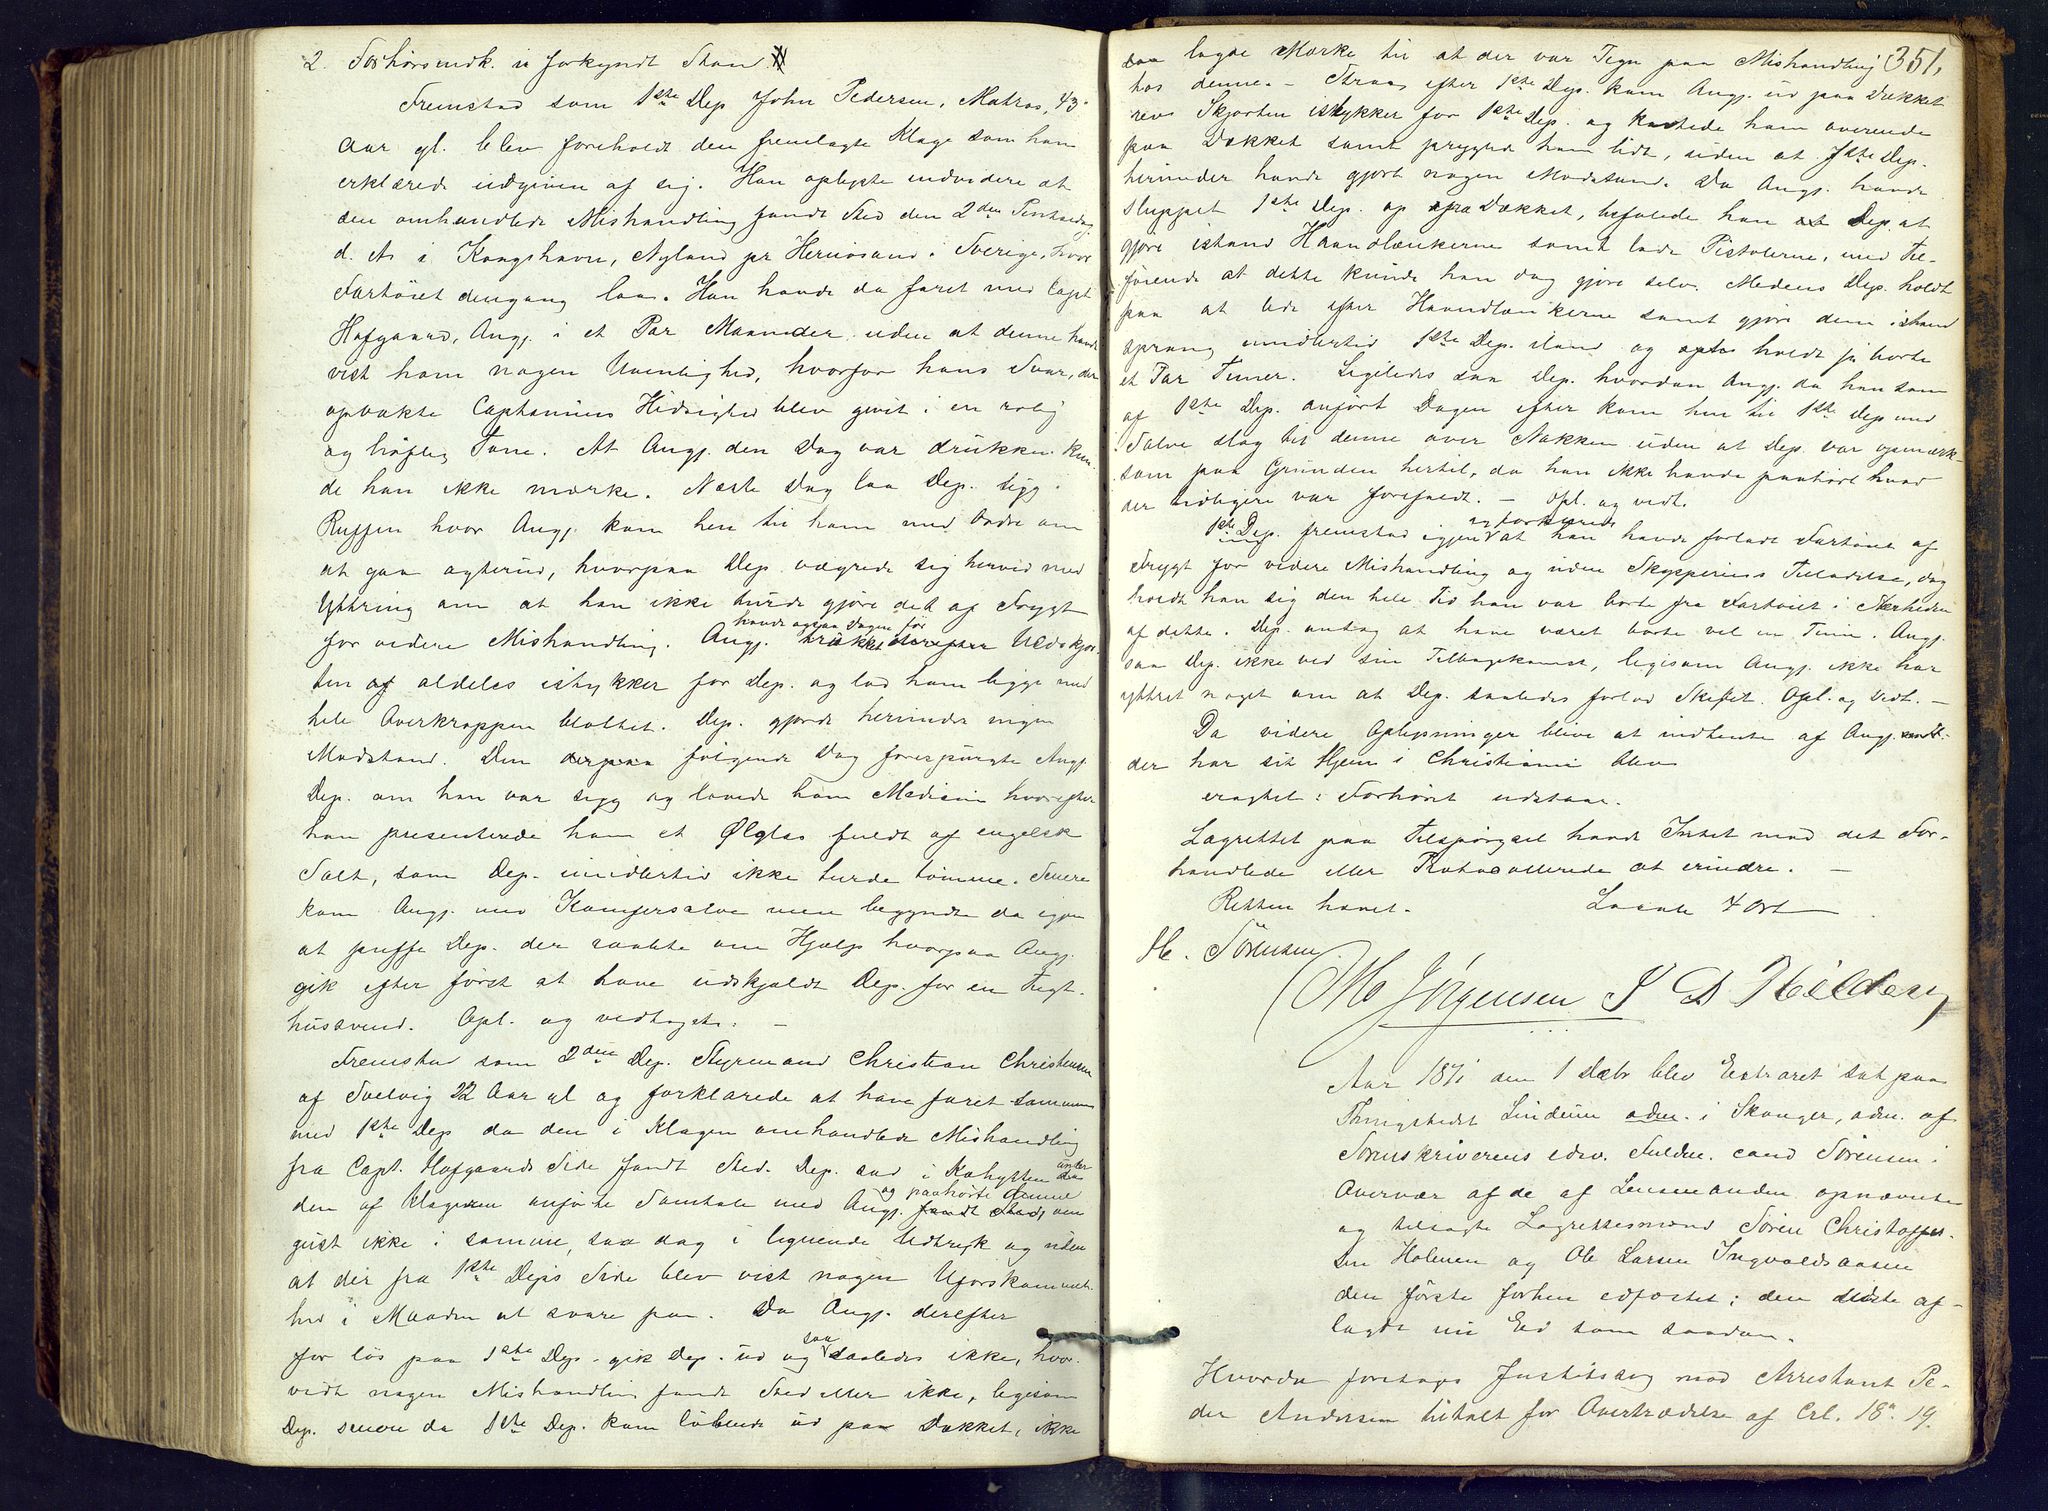 2. Forhørsindk. i forkyndt Stand
Fremstod som 1ste Dep John Pedersen, Matros, 43
Aar gl. blev foreholdt den fremlagte Klage som han
erklærede udgiven af sig. Han oplyste endvidere at
den omhandlede Mishandling fandt Sted den 2den Pintsedag
d. As i Kongshavn, Nyland pr Hernösand i Sverige, hvor
Fartöiet dengang laa. Han havde da faret med Capt
Hofgaard, Ang. i et Par Maaneder uden at denne havde
vist ham nogen Uvenlighed, hvorfor hans Svar, der
opvakte Captainens Hidsighed blev givet i en rolig
og höflig Tone. At Ang. den Dag var drukken kun-
de han ikke mærke. Næste Dag laa Dep. syg i
Ruffen hvor Ang. kom hen til ham med Ordre om
at gaa agterud, hvorpaa Dep. vægrede sig herved med
Yttring om at han ikke turde gjøre det af Frygt
for videre Mishandling. Ang. havde ogsaa Dagen før Uldskjor-
ten af aldeles istykker for Dep. og lod ham ligge med
hele Overkroppen blottet. Dep. gjorde herunder ingen
Modstand. Den derpaa følgende Dag forespurgte Ang.
Dep. om han var syg og lovede ham Medicin hvorefter
han presenterede ham et Ølglas fuldt af engelsk
Salt, som Dep. imidlertid ikke turde tömme. Senere
kom Ang. med Kamfersalve men begyndte da igjen
at puffe Dep. der raabte om Hjælp hvorpaa Ang.
gik efter først at have udskjældt Dep. for en Tugt-
hussvend. Opl. og vedtaget. —
Fremstod som 2den Dep. Styrmand Christian Christensen
af Svelvig 22 Aar gl og forklarede at have faret sammen
med 1ste Dep da den i Klagen omhandlede Mishandling
fra Capt. Hofgaards Side fandt Sted. Dep. sad i Kahytten under
den af Klageren anførte Samtale med Ang. og paahørte denne om
just ikke i samme, saa dog i lignende Udtryk og uden
at der fra 1ste Deps Side blev vist nogen Uforskammet-
hed i Maaden at svare paa. Da Ang. derefter
for løs paa 1ste Dep. gik Dep. ud og saa saaledes ikke, hvor-
vidt nogen Mishandling fandt Sted eller ikke, ligesom
Dep. senere da 1ste Dep. kom löbende ud paa Dækket, ikke
351.
lagde Mærke til at der var Tegn paa Mishandling
hos denne. — Strax efter 1ste Dep. kom Ang. ud paa Dækket
rev Skjorten istykker for 1ste Dep. og kastede ham overende
paa Dækket samt pryglede ham lidt, uden at 1ste Dep.
herunder havde gjort nogen Modstand. Da Ang. havde
sluppet 1ste Dep. op fra Dækket, befalede han Dep. at
gjøre istand Haandlænkerne samt lade Pistolerne, med Til-
føiende at dette kunde han dog gjøre selv. Medens Dep. holdt
paa at lede efter Haandlænkerne samt gjøre dem istand
sprang imidlertid 1ste Dep. iland og holdt sig borte
et Par Timer. Ligeledes saa Dep. hvordan Ang. da han som
af 1ste Dep. anført Dagen efter kom hen til 1ste Dep med
Salve slog til denne over Nakken uden at Dep. var opmærk-
som paa Grunden hertil, da han ikke havde paahört hvad
der tidligere var forefaldt. — Opl. og vedt.
1ste Dep. fremstod igjen og forklarede at han havde forladt Fartöiet af
Frygt for videre Mishandling og uden Skipperens Tilladelse, dog
holdt han sig den hele Tid han var borte fra Fartöiet i Nærheden
af dette. Dep. antog at have været borte vel en Time. Ang.
saa Dep. ikke ved sin Tilbagekomst, ligesom Ang. ikke har
yttret noget om at Dep. saaledes forlod Skibet. Opl. og Vedt. —
Da videre Oplysninger blive at indhente af Ang.
der har sit Hjem i Christiania blev
eragtet: Forhöret udstaar.
Lagrettet paa Tilspörgsel havde Intet mod det For-
handlede eller Protocollerede at erindre. —
Retten hævet.
4 Ort
Sörensen
Jørgensen
Aar 1871 den 1 Decbr blev Extraret sat paa
Thingstedet Lindum adm. i Skouger, adm. af
Sorenskriverens edsv. Fuldm. cand Sørensen i
Overvær af de af Lensmanden opnævnte
og tilsagte Lagrettesmænd Sören Christoffer-
sen Holmen og Ole Larsen Ingvaldsaasen
den förste forhen edfæstet; den sidste af-
lagde nu Ed som saadan.
Hvorda foretoges Justitssag mod Arrestant Pe-
der Andersen tiltalt for Overtrædelse af Crl. 18. 19.